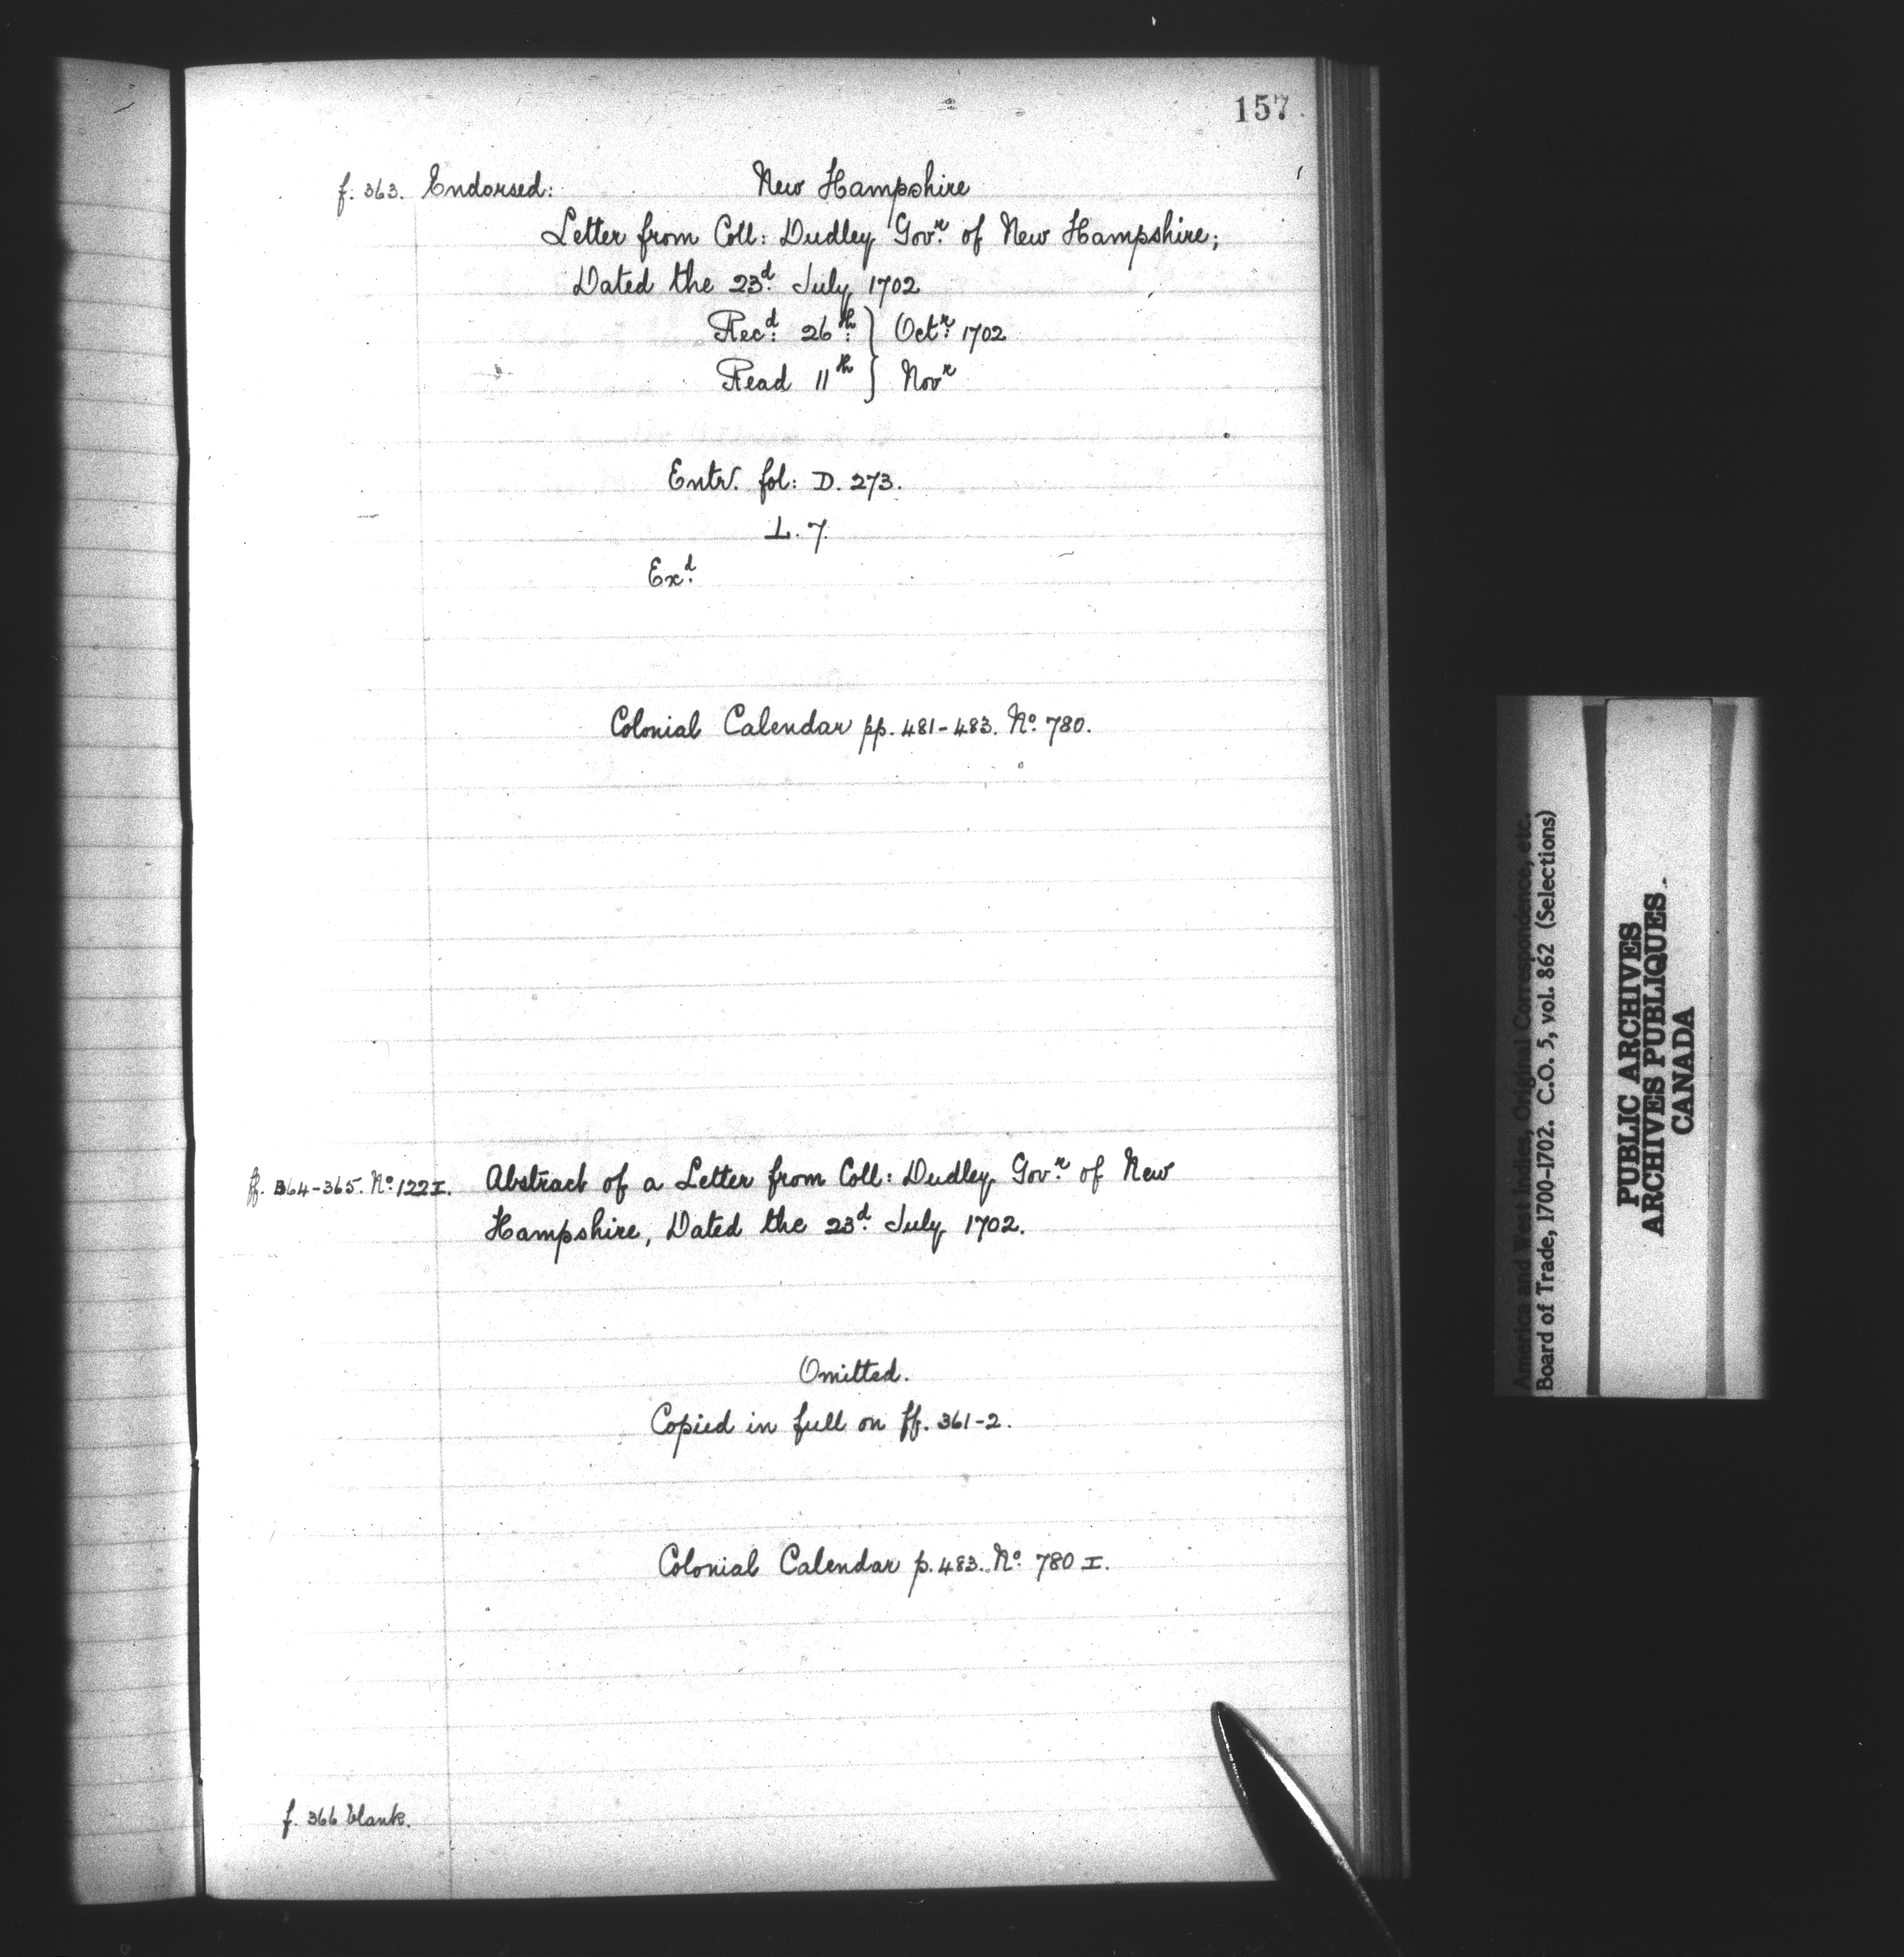 157.
f. 363. Endorsed: New Hampshire
Letter from Coll: Dudley Gov.r of New Hampshire;
Dated the 23.d July 1702
Rec.d 26.th } Oct.r 1702
Read 11th } Novr
Entd. fol: D. 273.
L. 7.
Ex.d
Colonial Calendar pp. 481-483. No. 780.
ff. 364-365. No. 122 I. Abstract of a Letter from Coll: Dudley Gov.r of New
Hampshire, Dated the 23.d July 1702.
Omitted.
Copied in full on ff. 361-2.
Colonial Calendar p. 483. No. 780 I.
f. 366 blank.
America and West Indies, Original Correspondence, etc.
Board of Trade, 1700-1702. C.O. 5, vol. 862 (Selections)
PUBLIC ARCHIVES
ARCHIVES PUBLIQUES
CANADA